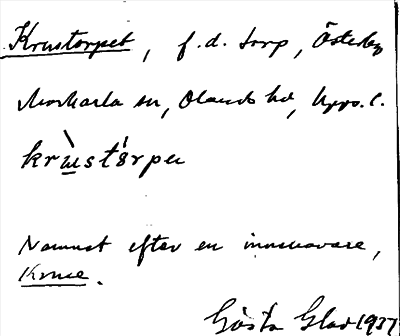 Krustorpet, f.d. torp, Österby
Morkarla sn, Olands hd, Upps. l.
krùstårpe
Namnet efter en innehavare,
Kruse.
Gösta Glad 1937